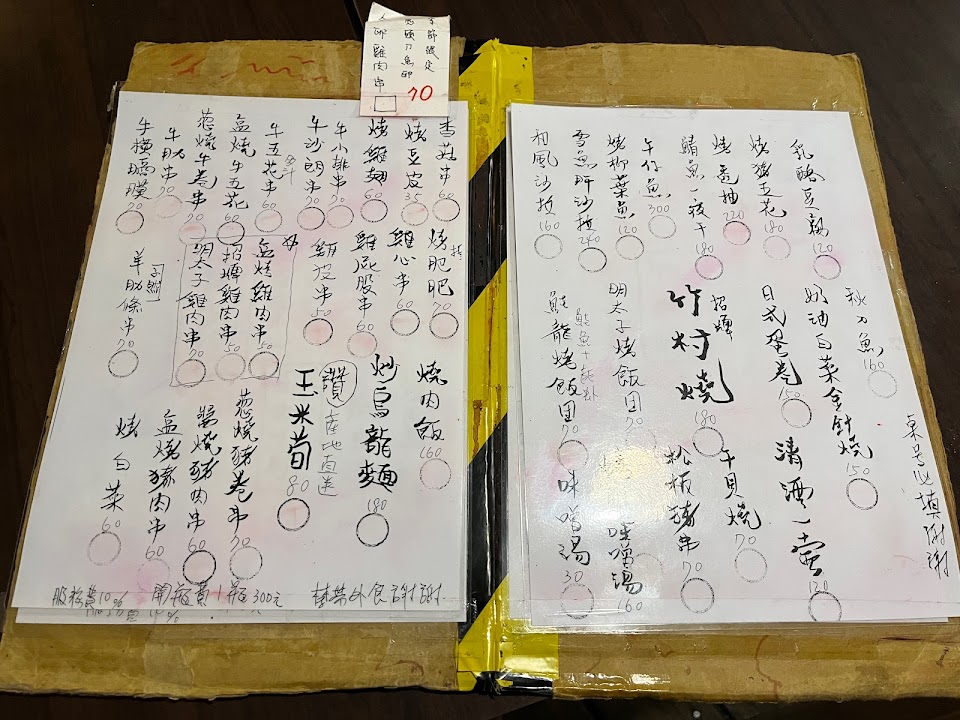 季節限定
鬼頭刀魚卵
人卵雞肉串
70
香菇串 60
烤豆皮 35
烤雞翅 60
牛小排串 70
牛沙朗串 70
牛五花串 60
盐燒牛五花 60
蔥燒牛卷串 70
牛肋串 70
牛橫膈膜 70
烤肥肥 70
雞心串 60
雞屁股串 60
雞皮串 50
盐烤雞肉串 50
招牌雞肉串 50
明太子雞肉串 70
羊肋條串 70
燒肉飯 160
炒烏龍麵 180
讚 產地直送
玉米荀 80
蔥燒豬卷串 70
醬燒豬肉串 60
盐燒豬肉串 60
烤白菜 60
服務費10%
開瓶費1瓶300元
禁帶外食謝謝
乳酪豆腐 120
烤豬五花 180
烤透抽 220
鯖魚一夜干 180
午仔魚 300
烤柳葉魚 120
雪魚肝沙拉 240
和風沙拉 160
秋刀魚 160
奶油白菜金針燒 150
日式蛋卷 150
招牌
竹村燒 180
明太子烤飯团 70
鮭龍烤飯团 70
清酒一壺 120
干貝燒 70
松板豬串 70
味噌湯 160
味噌湯 30
桌号必填謝謝